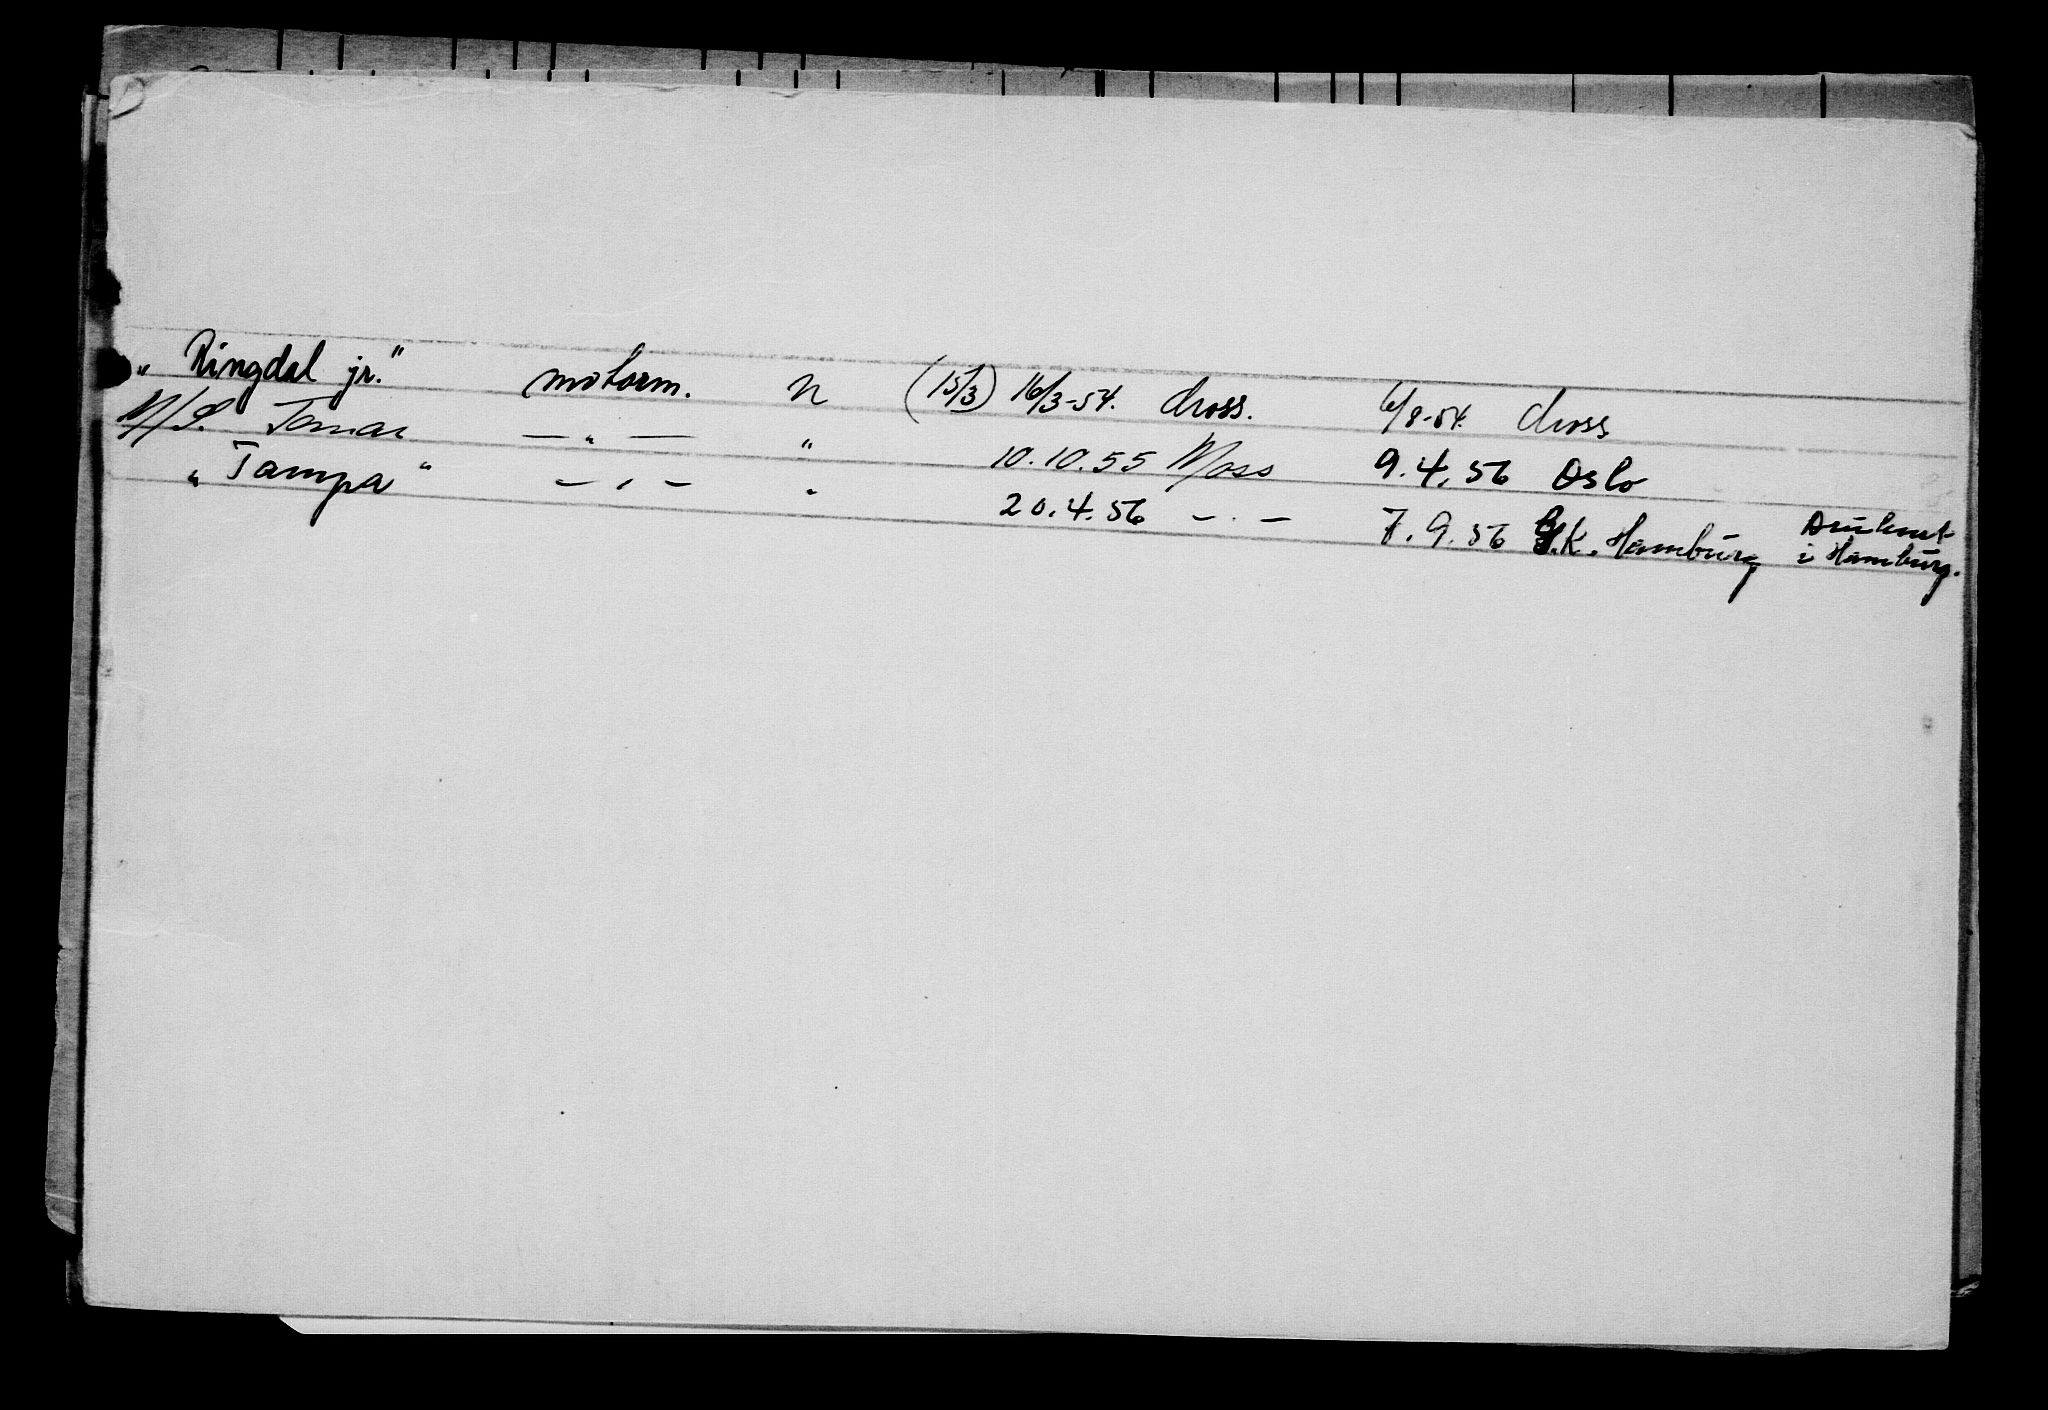 "Ringdal jr." motorm. n (15/3) 16/3-54. Moss. 6/8-54. Moss
M/S. Tamar — " — " 10.10.55 Moss 9.4.56 Oslo
"Tampa" — " — " 20.4.56 — " — 7.9.56 G.K. Hamburg Druknet
i Hamburg.